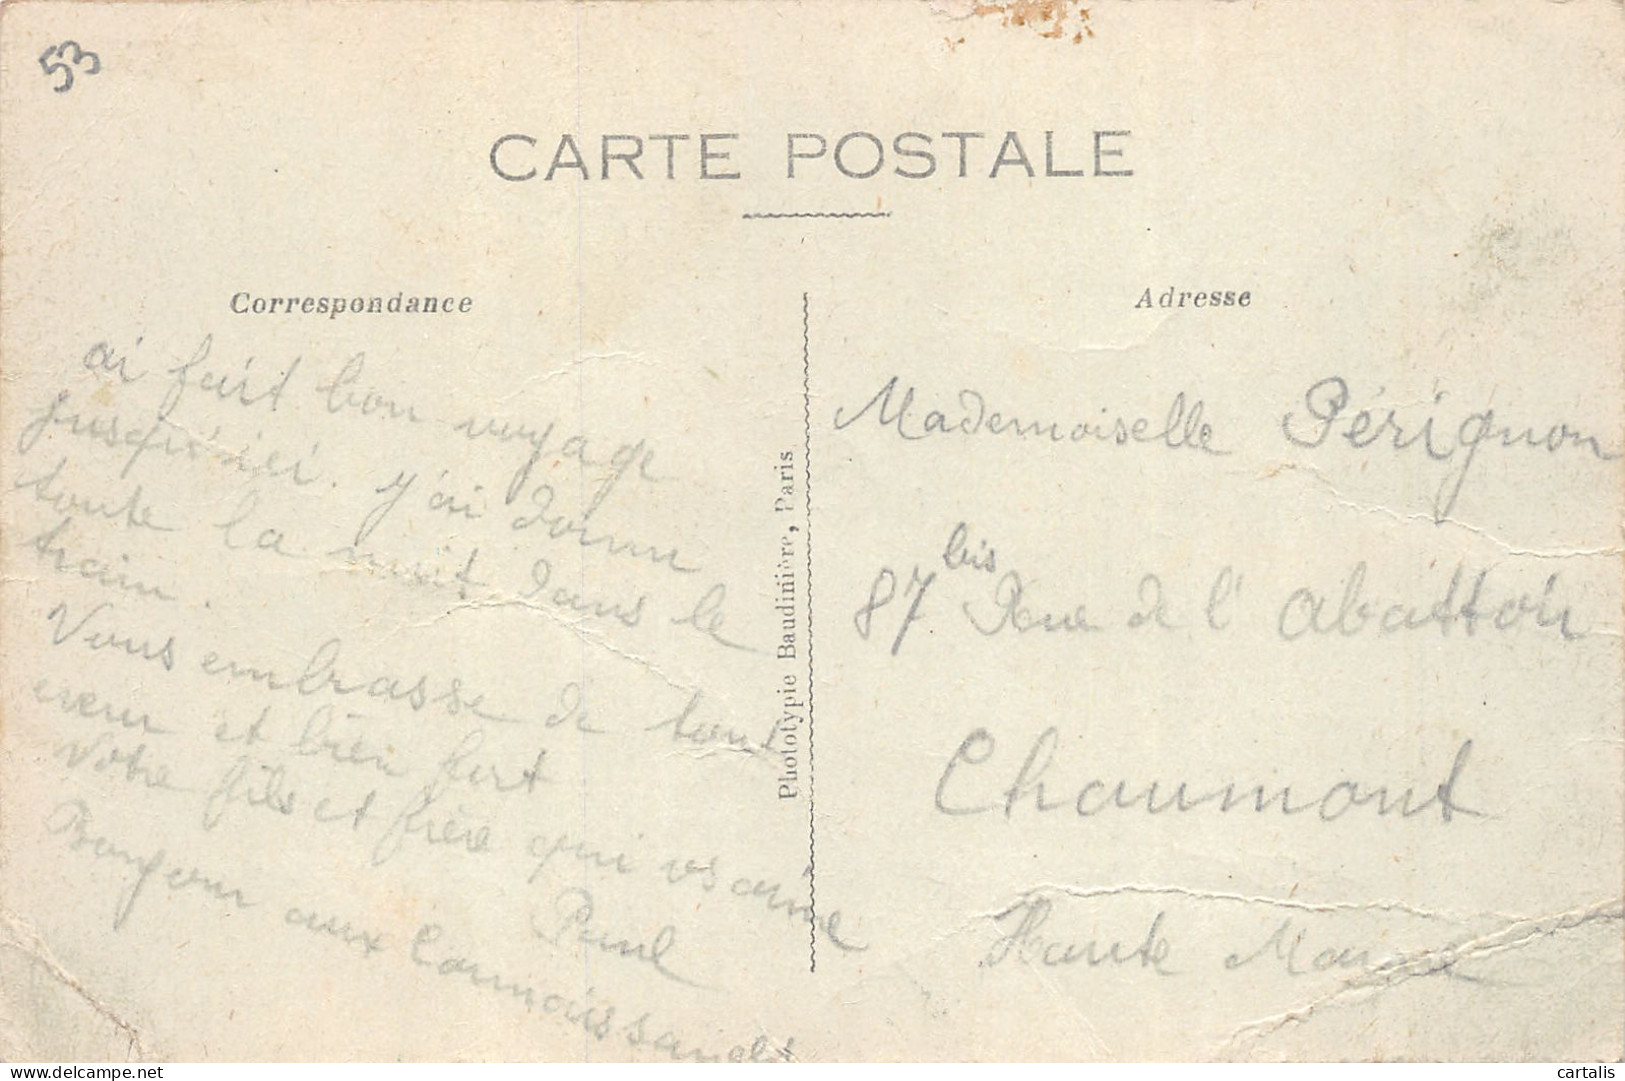 53
CARTE POSTALE
Correspondance
Adresse
ai fait bon voyage
jusqu'ici. j'ai dormi
toute la nuit dans le
train.
Vous embrasse de tout
cœur et bien fort
Votre fils et frère qui vs aime
Paul
Bonjour aux connaissances
Phototypie Baudinière, Paris
Mademoiselle Pérignon
87 bis Rue de l'abattoir
Chaumont
Haute Marne
delcampe.net
cartalis